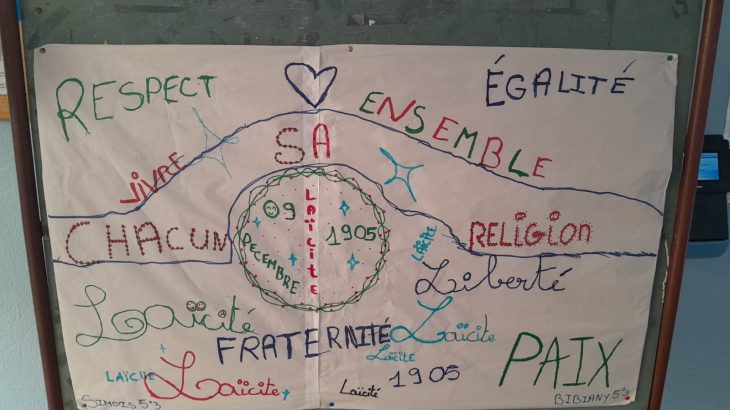 RESPECT
ÉGALITÉ
VIVRE ENSEMBLE
CHACUN SA RELIGION
09
DECEMBRE
LAÏCITE
1905
LAÏCITE
Liberté
Laïcité
FRATERNITÉ
Laïcite
LAÏCITE
PAIX
LAÏCITE
Laïcite
Laïcité
1905
SIMOIS 5°3
BIBIANY 5°3